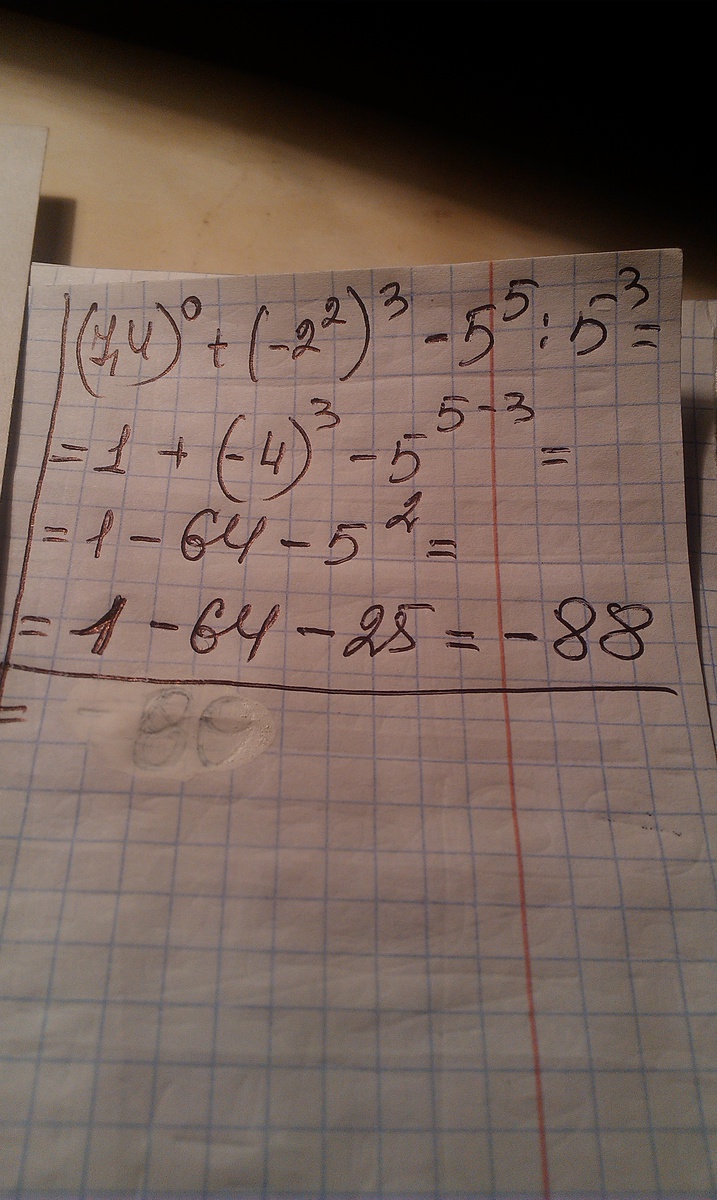 (7,4)⁰ + (-2²)³ - 5⁵ : 5³ =
= 1 + (-4)³ - 5⁵⁻³ =
= 1 - 64 - 5² =
= 1 - 64 - 25 = -88
=